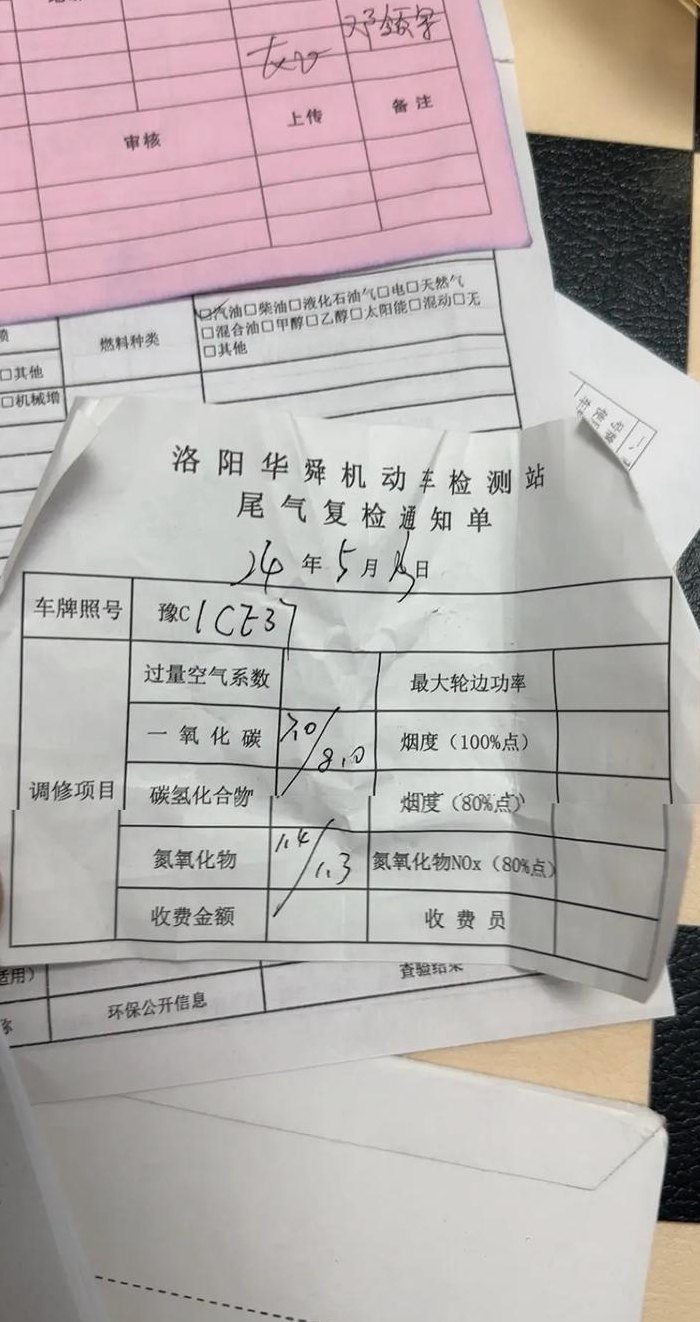 邓领军
审核 上传 备注
☑汽油□柴油□液化石油气□电□天然气
燃料种类 □混合油□甲醇□乙醇□太阳能□混动□无
□其他 □其他
□机械增
洛阳华舜机动车检测站
尾气复检通知单
24年5月13日
车牌照号 豫C1CE37
过量空气系数 最大轮边功率
一氧化碳 7.0/8.0 烟度（100%点）
调修项目 碳氢化合物 烟度（80%点）
氮氧化物 1.4/1.3 氮氧化物NOx（80%点）
收费金额 收费员
适用） 查验结果
环保公开信息